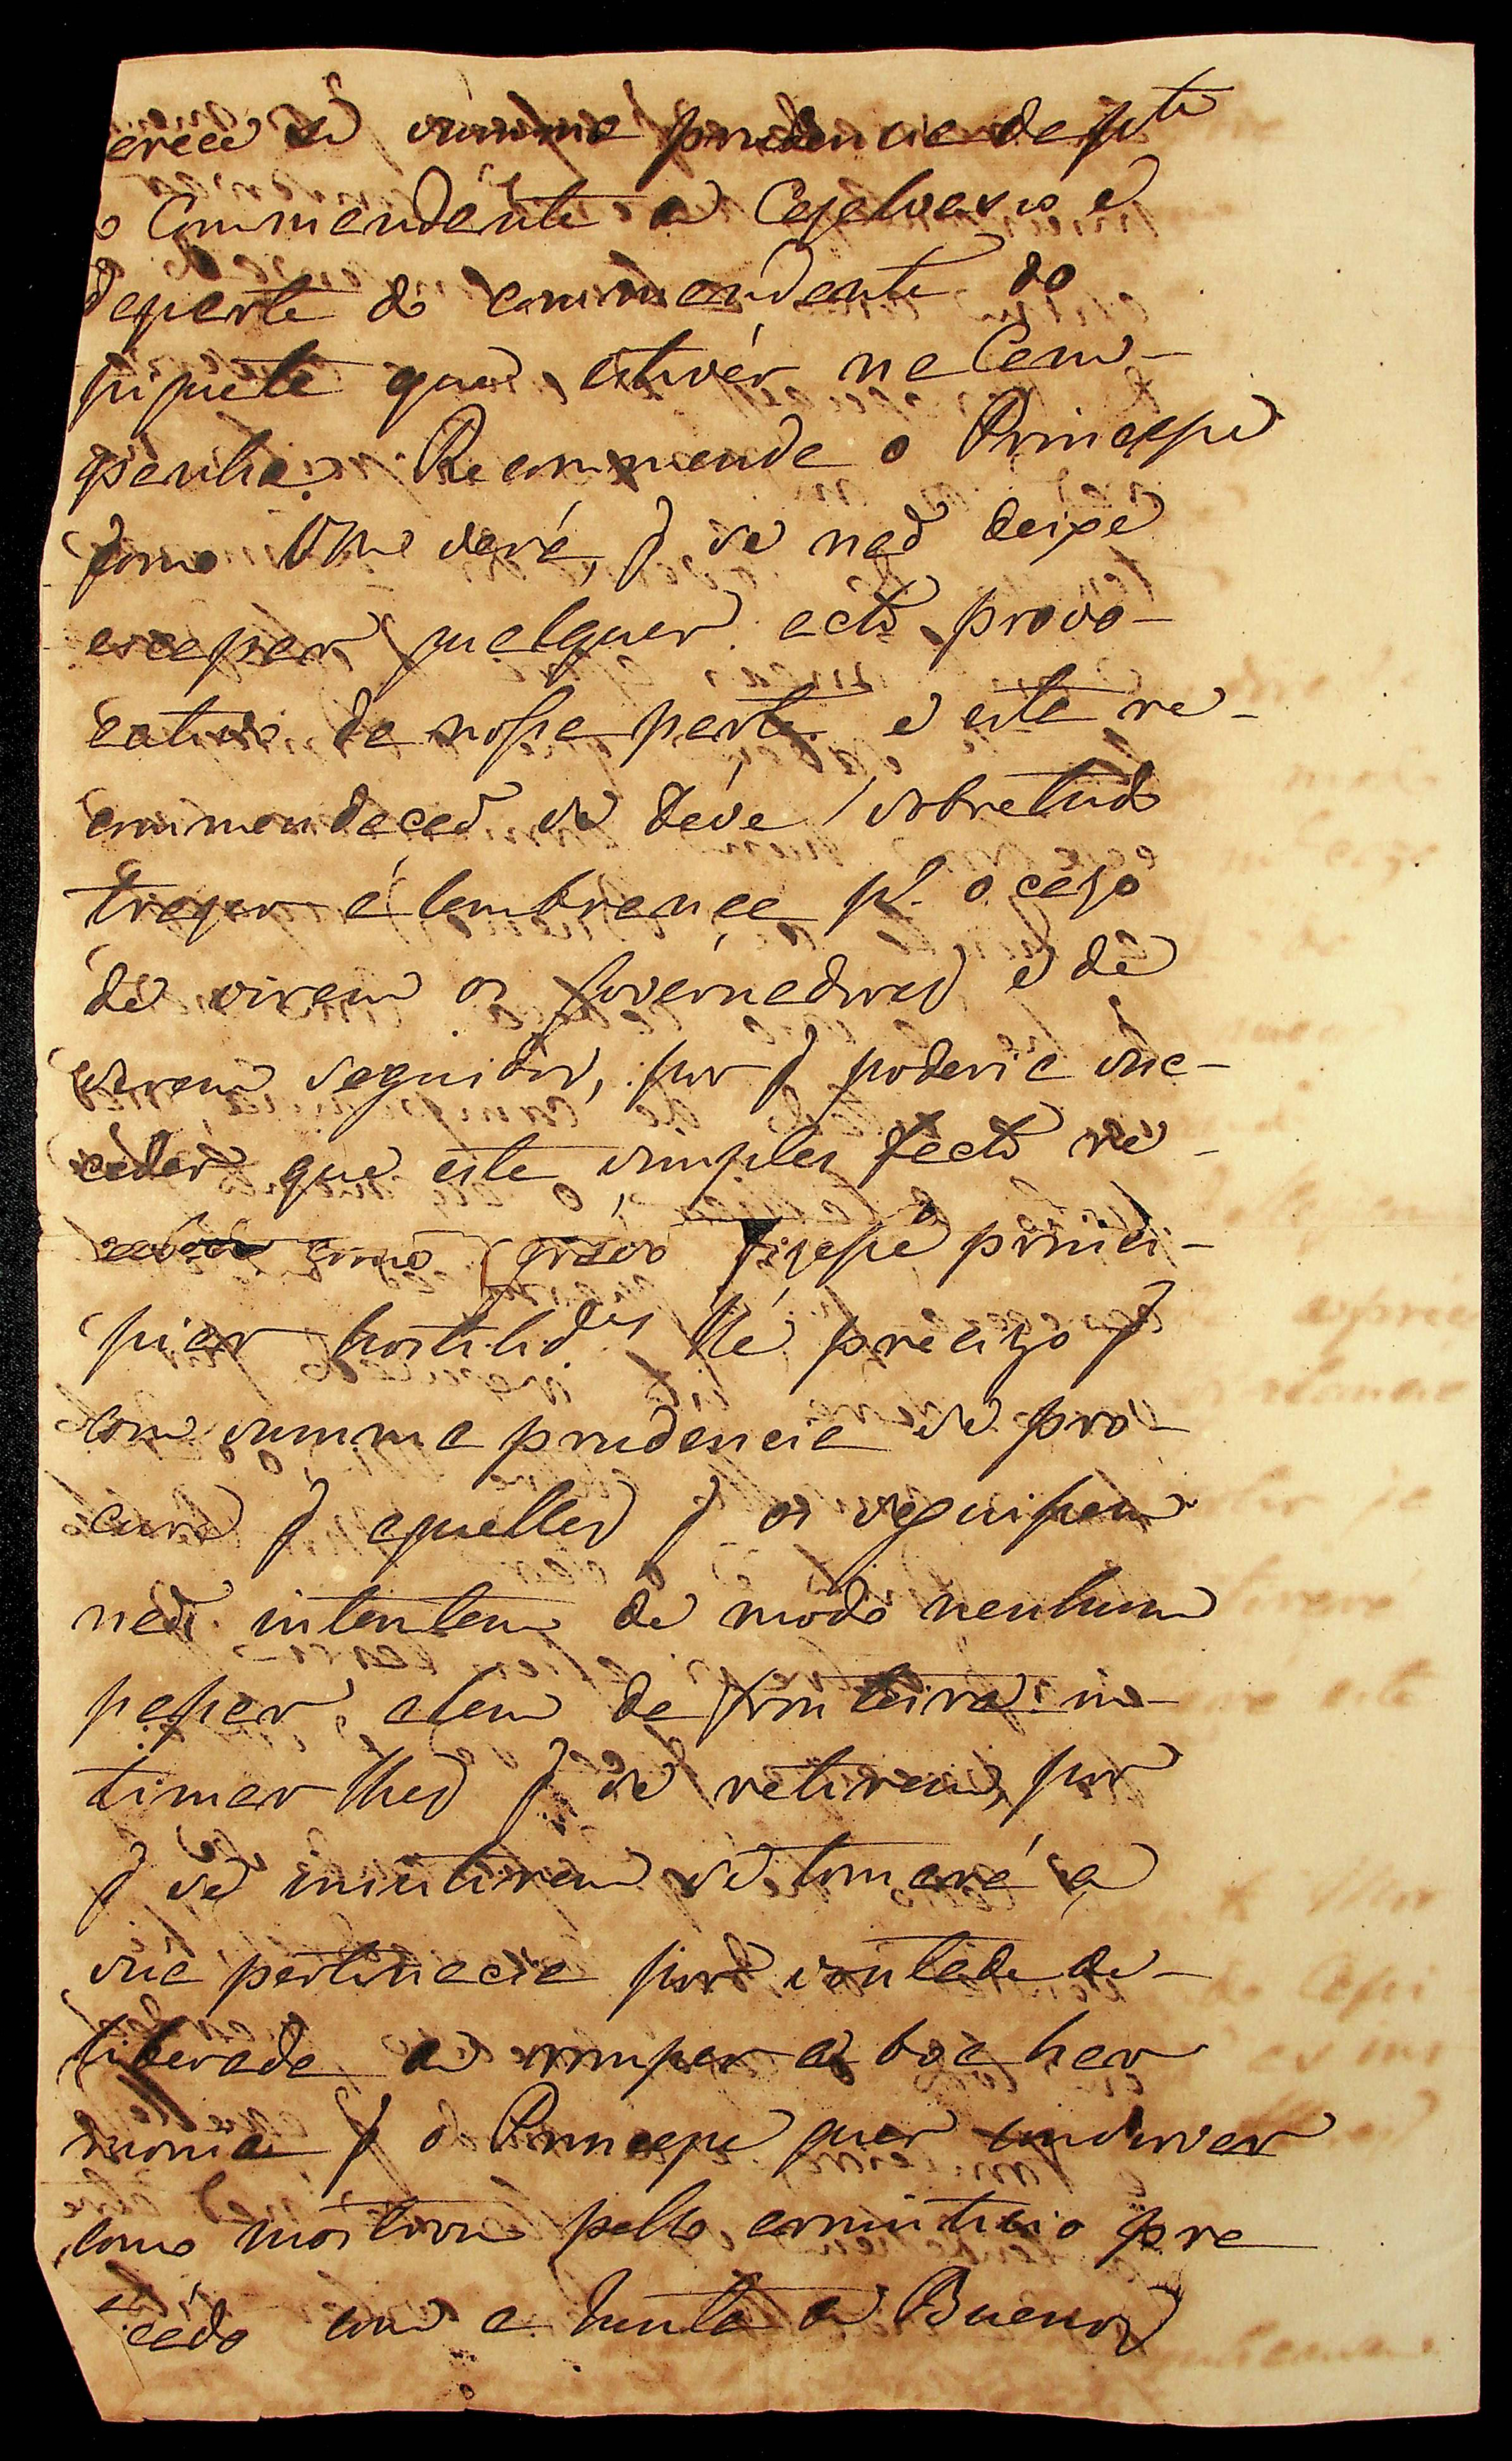 summa prudencia da pte
o Commandante a Cavalharia e
da parte do commandante do
piquete que estiver na Cam-
panha. Recommenda o Principe
como VMe verá, q se naõ deixe
escapar qualquer acto provo-
cativo da nossa parte e esta re-
commendaçaõ se deve sobretudo
trazer á lembrança pa. o cazo
de virem os Governadores e de
serem seguidos, por q poderia suc-
ceder que este simples facto re-
como fizesse princi-
piar hostilides. Hé precizo q
com summa prudencia se pro-
cure q aquelles q os seguissem
naõ intentem de modo nenhum
passar alem da fronteira in-
timar lhes q se retirem, por
q se insistirem se tomará a
sua pertinacia por vontade de-
liberada a romper a boa har
monia q o Principe quer conservar
como mostrou pello armisticio pra
cado com a Junta a Buenos